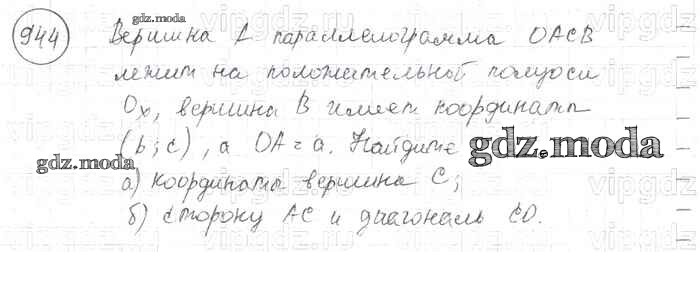 944 Вершина A параллелограмма OACB
лежит на положительной полуоси
Ox, вершина B имеет координаты
(b; c), а OA = a. Найдите
а) координаты вершина C;
б) сторону AC и диагональ CO.
gdz.moda
gdz.moda
gdz.moda
vipgdz